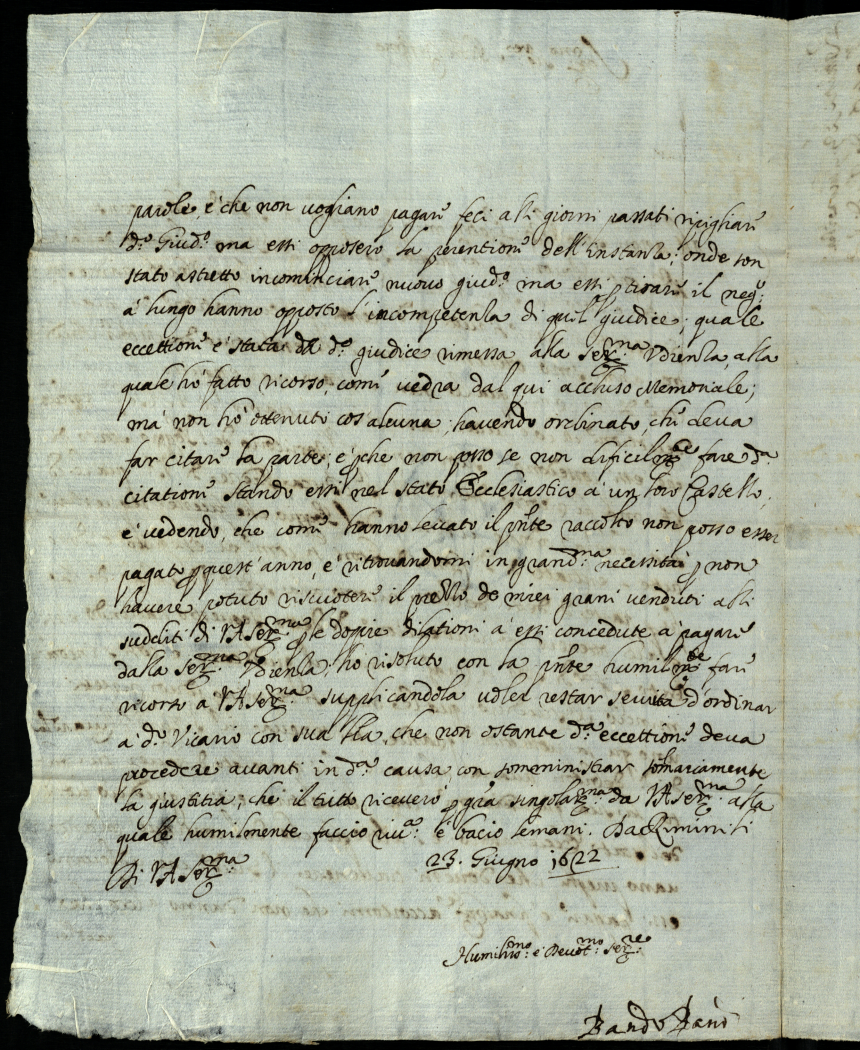 parole, e che non vogliano pagare feci alli giorni passati ripigliare
d.º Giud.º ma essi opposero la perentione dell'instanza; onde son
stato astretto incominciare nuovo giud.º ma essi p tirare il neg.º
a' lungo hanno opposto l'incompetenza di quel giudice; quale
eccettione e' stata da d.º giudice rimessa alla Ser.ma Udienza, alla
quale ho' fatto ricorso, come vedra dal qui accluso Memoriale;
ma' non ho' ottenuto cos'alcuna, havendo ordinato, che deva
far citare la parte; e pche non posso se non dificilm.te fare d.a
citatione stando essi nel stato Ecclesiastico a' un loro Castello,
e' vedendo, che come hanno levato il pnte raccolto non posso esser
pagato p quest'anno, e' ritrovandomi in grand.ma necessita p non
havere potuto riscuotere il prezzo de miei grani venduti alli
sudditi di VA Ser.ma p le doppie dilationi a' essi concedute a' pagare
dalla Ser.ma Udienza, ho risoluto con la pnte humilm.te fare
ricorso a' VA Ser.ma supplicandola voler restar servita d'ordinar
a' d.º Vicario con sua l'ra, che non ostante d.a eccettione deva
procedere avanti in d.a causa con somministrar somariamente
la giustitia; che il tutto ricevero' p gra singolar.ma da VA Ser.ma alla
quale humilmente faccio riv.a e' bacio le mani. Da Rimini li
Di VA Ser.ma 23. Giugno 1622
Humiliss.mo e' Devot.mo Ser.re
Bando